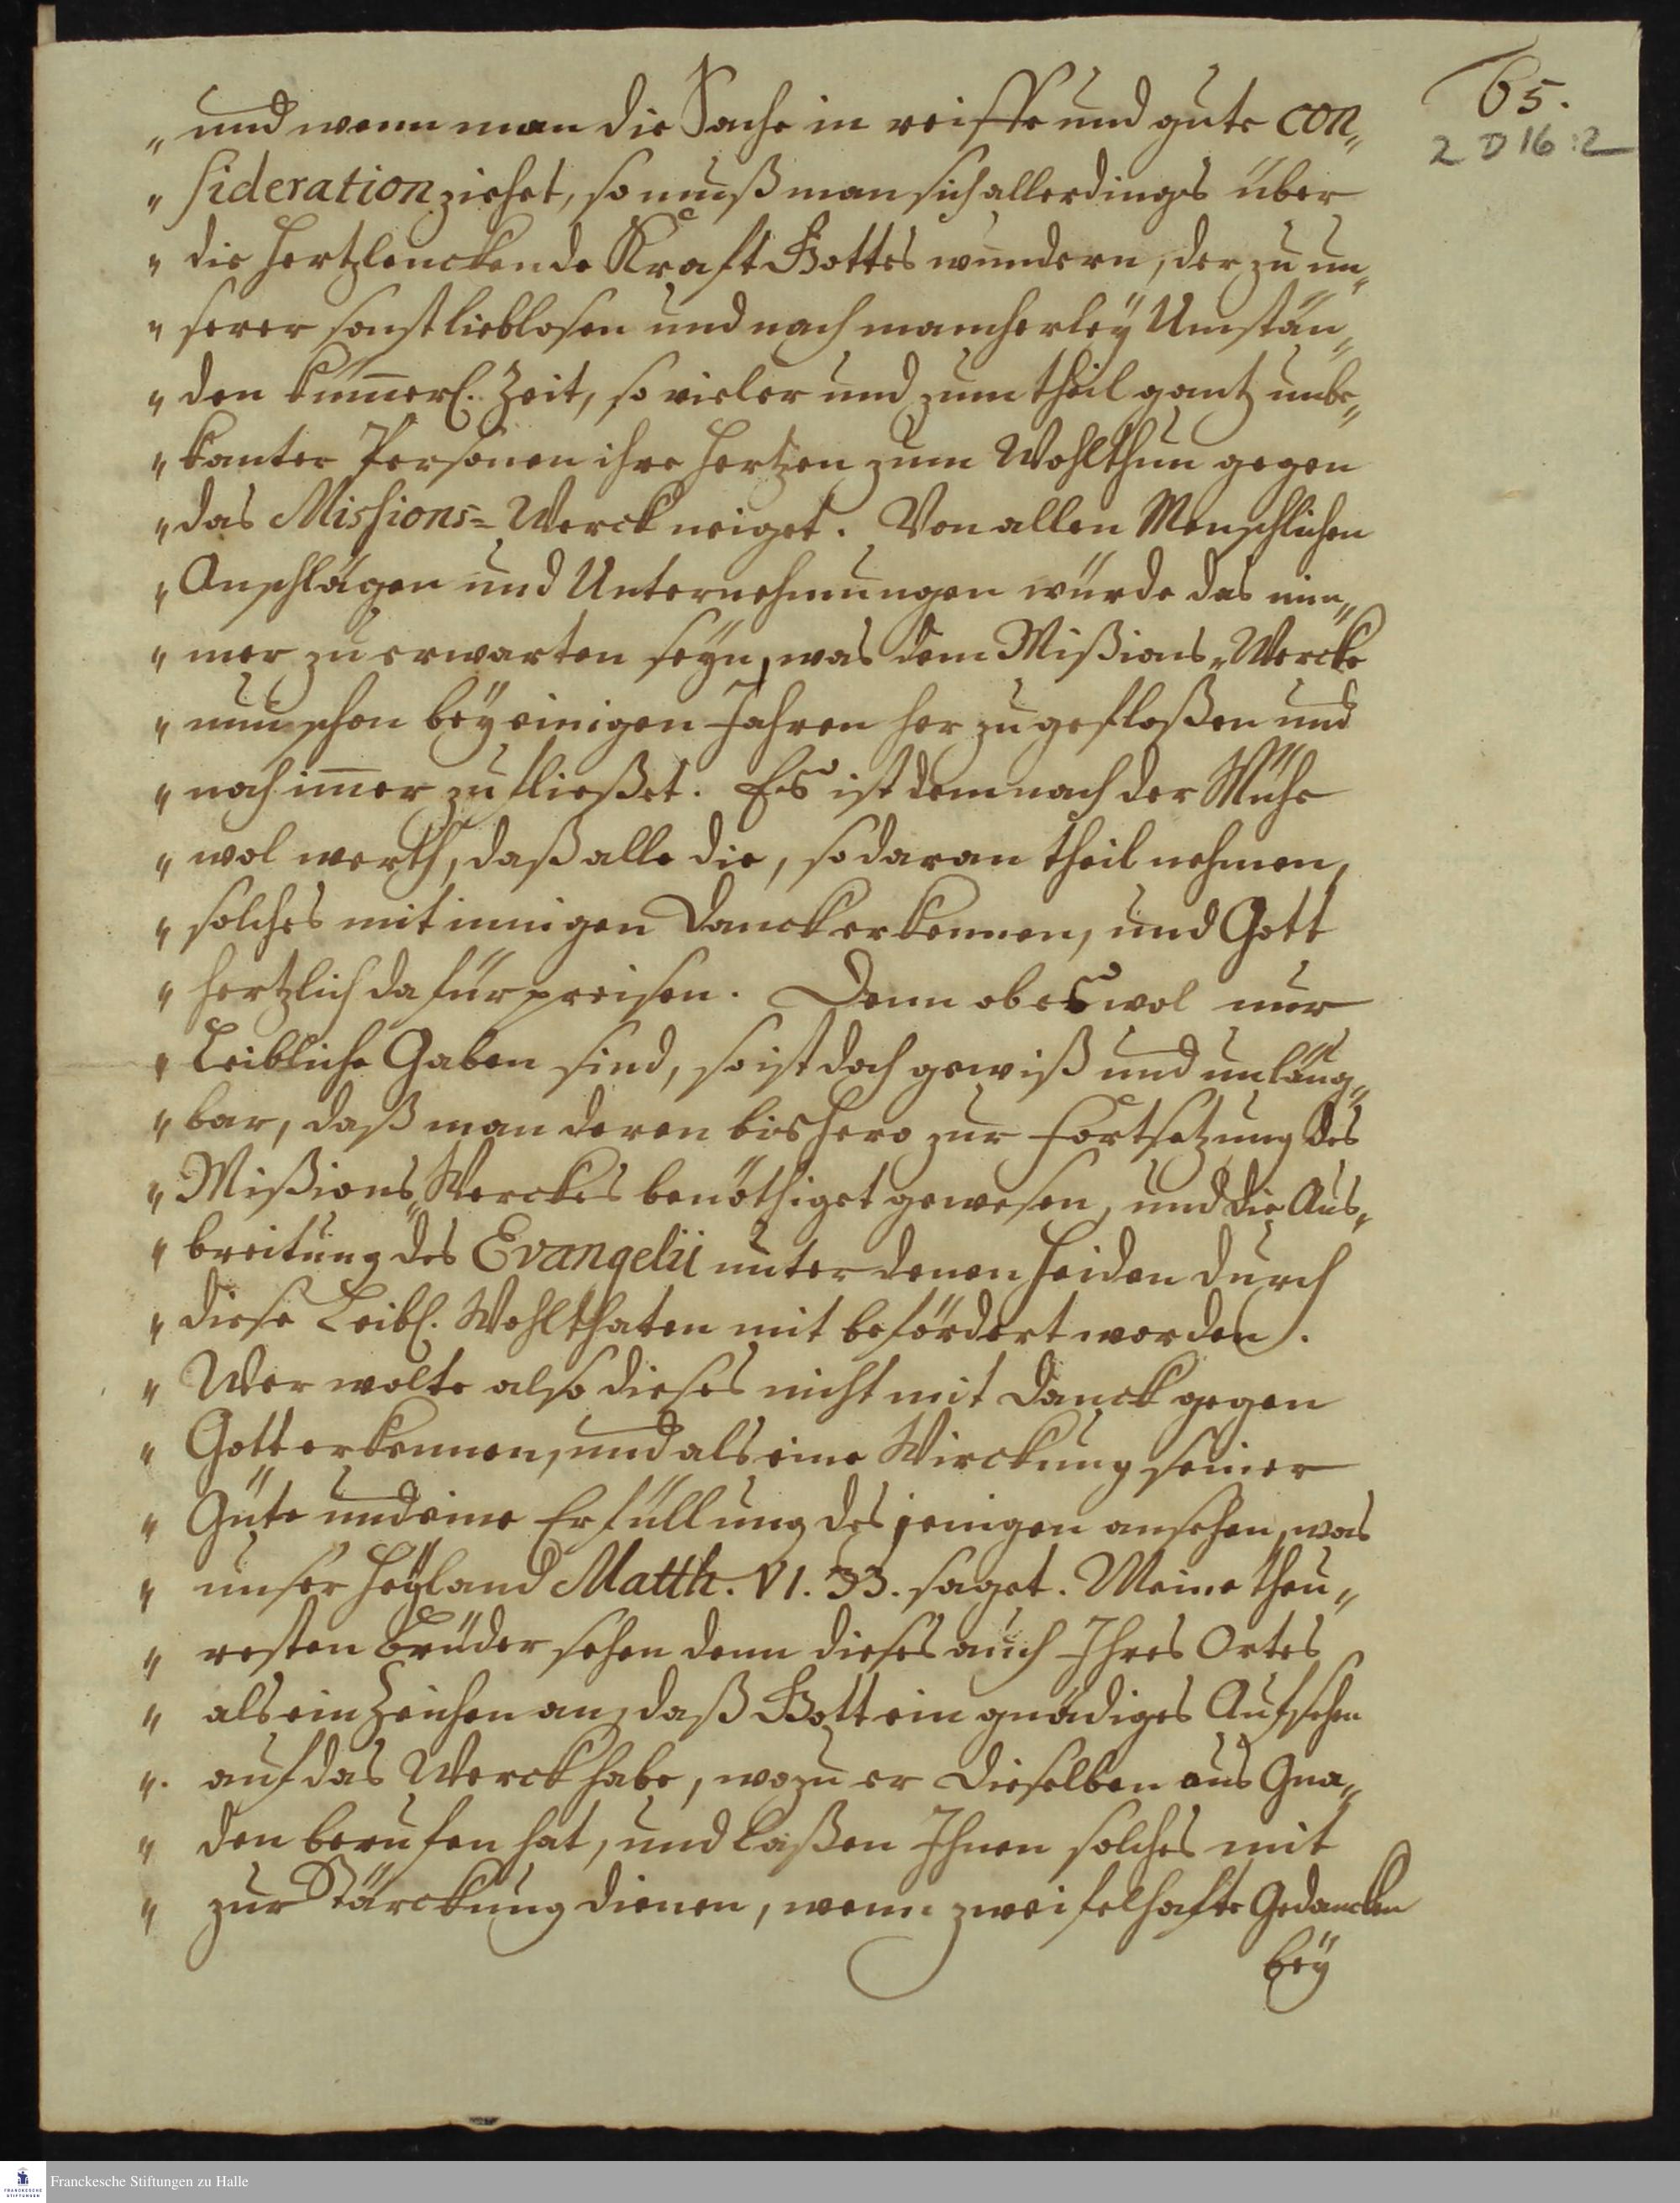 65.
2 D 16 : 2
„ und wenn man die Sache in reiffe und gute con„
„ sideration ziehet, so muß man sich allerdings über
„ die hertzlenckende Krafft Gottes wundern, der zu un„
„ serer sonst lieblosen und nach mancherleÿ Umstän„
„ den kum̅erl. Zeit, so vieler und zum theil gantz unbe„
„ kanter Personen ihre Hertzen zum Wohlthun gegen
„ das Missions= Werck neiget. Von allen Menschlichen
„ Anschlägen und Unternehmungen würde das nim„
„ mer zu erwarten seÿn, was dem Mißions„Wercke
„ nun schon beÿ einigen Jahren her zugefloßen und
„ noch im̅er zufließet. Es ist demnach der Mühe
„ wol werth, daß alle die, so daran theil nehmen,
„ solches mit innigen Danck erkennen, und Gott
„ hertzlich dafür preisen. Denn ob es wol nur
„ Leibliche Gaben sind, so ist doch gewiß und unläug„
„ bar, daß man deren bishero zur Fortsetzung des
„ Mißions„Werckes benöthiget gewesen, und die Aus„
„ breitung des Evangelii unter denen Heiden durch
„ diese Leibl. Wohlthaten mit befördert worden.
„ Wer wolte also dieses nicht mit Danck gegen
„ Gott erkennen, und als eine Wirckung seiner
„ Güte und eine Erfüllung desjenigen ansehen, was
„ unser Heÿland Matth. VI. 33. saget. Meine theu„
„ resten Brüder sehen denn dieses auch Ihres Ortes
„ als ein Zeichen an, daß Gott ein gnädiges Aufsehen
„. auf das Werck habe, wozu er dieselben aus Gna„
„ den berufen hat, und laßen Ihnen solches mit
„ zur Stärckung dienen, wenn zweifelhafte Gedancken
beÿ
Franckesche Stiftungen zu Halle